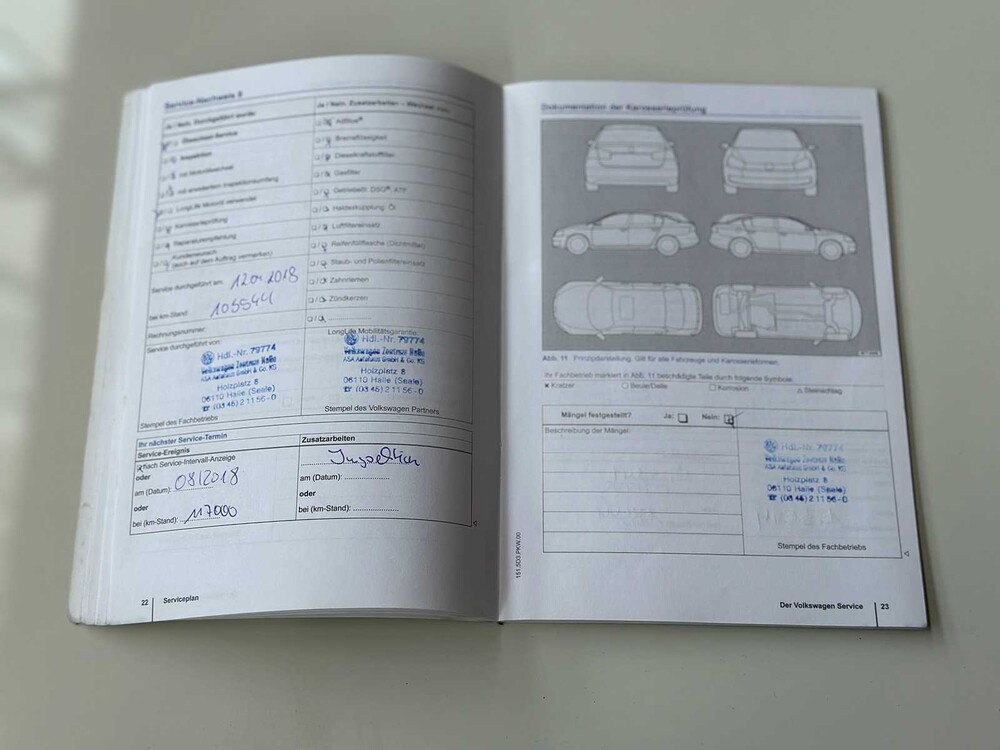 Service-Nachweis 9
Ja / Nein, Durchgeführt wurde:
Ölwechsel-Service
Inspektion
mit Motorölwechsel
mit erweitertem Inspektionsumfang
LongLife Motoröl verwendet
Karosserieprüfung
Reparaturempfehlung
Kundenwunsch
(auch auf dem Auftrag vermerken)
Service durchgeführt am: 12.04.2018
bei km-Stand: 105544
Rechnungsnummer:
Service durchgeführt von:
Hdl.-Nr. 79774
Volkswagen Zentrum Halle
ASA Autohaus GmbH & Co. KG
Holzplatz 8
06110 Halle (Saale)
☎ (03 45) 2 11 56 - 0
Stempel des Fachbetriebs
Ja / Nein, Zusatzarbeiten – Wechsel von:
AdBlue®
Bremsflüssigkeit
Dieselkraftstofffilter
Gasfilter
Getriebeöl: DSG®, ATF
Haldexkupplung: Öl
Luftfiltereinsatz
Reifenfüllflasche (Dichtmittel)
Staub- und Pollenfiltereinsatz
Zahnriemen
Zündkerzen
LongLife Mobilitätsgarantie:
Hdl.-Nr. 79774
Volkswagen Zentrum Halle
ASA Autohaus GmbH & Co. KG
Holzplatz 8
06110 Halle (Saale)
☎ (03 45) 2 11 56 - 0
Stempel des Volkswagen Partners
Ihr nächster Service-Termin
Service-Ereignis
nach Service-Intervall-Anzeige
oder
am (Datum): 08/2018
oder
bei (km-Stand): 117000
Zusatzarbeiten
Inspektion
am (Datum):
oder
bei (km-Stand):
22 Serviceplan
Dokumentation der Karosserieprüfung
Abb. 11 Prinzipdarstellung. Gilt für alle Fahrzeuge und Karosserieformen.
Ihr Fachbetrieb markiert in Abb. 11 beschädigte Teile durch folgende Symbole:
× Kratzer ○ Beule/Delle □ Korrosion △ Steinschlag
Mängel festgestellt? Ja: Nein:
Beschreibung der Mängel:
Hdl.-Nr. 79774
Volkswagen Zentrum Halle
ASA Autohaus GmbH & Co. KG
Holzplatz 8
06110 Halle (Saale)
☎ (03 45) 2 11 56 - 0
Stempel des Fachbetriebs
151.5D3.PKW.00
Der Volkswagen Service 23